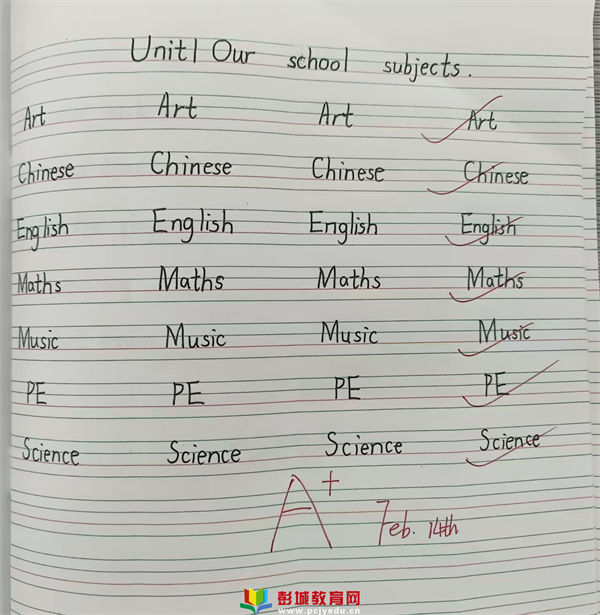 Unit1 Our school subjects.
Art Art Art Art
Chinese Chinese Chinese Chinese
English English English English
Maths Maths Maths Maths
Music Music Music Music
PE PE PE PE
Science Science Science Science
A+ Feb. 14th
彭城教育网
www.pcjyedu.cn